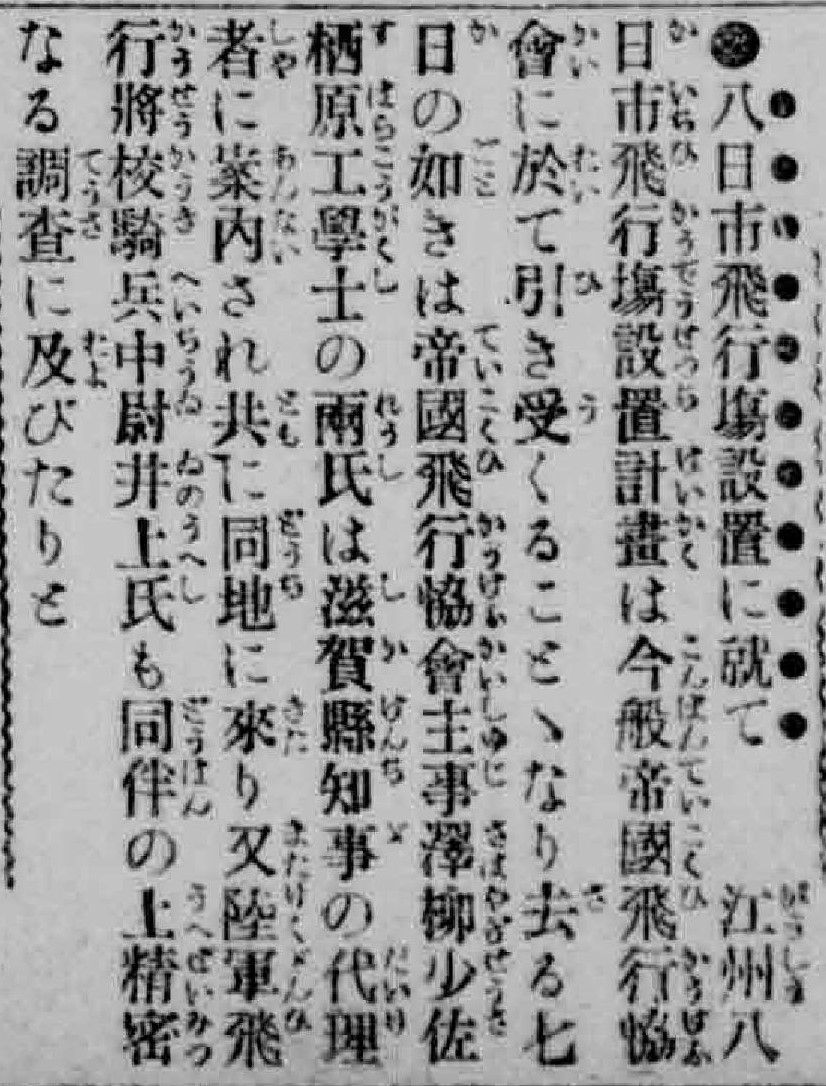 八日市飛行塲設置に就て　江州八
日市飛行塲設置計畫は今般帝國飛行協
會に於て引き受くることゝなり去る七
日の如きは帝國飛行協會主事澤柳少佐
栖原工學士の兩氏は滋賀縣知事の代理
者に案内され共に同地に來り又陸軍飛
行將校騎兵中尉井上氏も同伴の上精密
なる調査に及びたりと